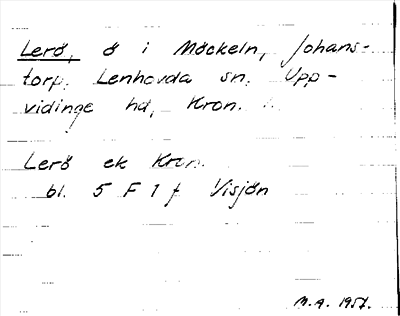 Lerö, ö i Möckeln, Johans-
torp, Lenhovda sn, Upp-
vidinge hd, Kron.
Lerö ek Kron.
bl. 5 F 1 f Visjön
M.A. 1957.